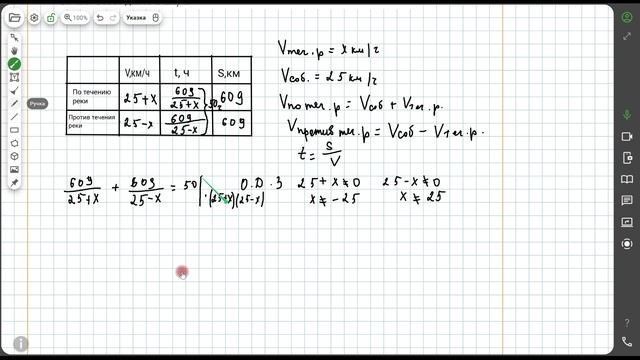 100%
Указка
Ручка
V,км/ч t, ч S,км
По течению реки 25+x 609/(25+x) 609
Против течения реки 25-x 609/(25-x) 609
50
Vтеч.р = x км/ч
Vсоб. = 25 км/ч
Vпо теч.р = Vсоб + Vтеч.р.
Vпротив теч.р = Vсоб - Vтеч.р.
t = S/V
609/(25+x) + 609/(25-x) = 50 | ·(25+x)(25-x)
О.D.З 25+x≠0 25-x≠0
x≠-25 x≠25